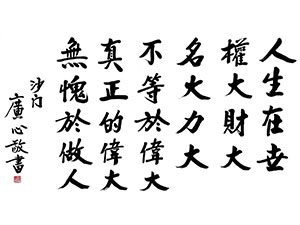 人生在世
權大財大
名大力大
不等於偉大
真正的偉大
無愧於做人
沙門
廣心敬書